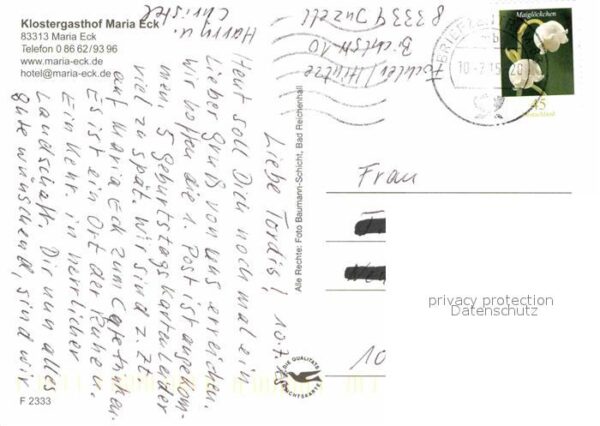 Klostergasthof Maria Eck
83313 Maria Eck
Telefon 0 86 62/93 96
www.maria-eck.de
hotel@maria-eck.de
Liebe Tordis! 10.7.15
Heut soll Dich noch mal ein
lieber Gruß von uns erreichen.
Wir hoffen die 1. Post ist angekom-
men, 5 Geburtstagskarten leider
viel zu spät. Wir sind z. Zt.
auf Maria Eck zum Cafetrinken.
Es ist ein Ort der Ruhe u.
Einkehr in herrlicher
Landschaft. Dir nun alles
gute wünschend, sind wir
Harry u.
Christel
83334 Inzell
Alle Rechte: Foto Baumann-Schicht, Bad Reichenhall
BRIEFZE
10.-7.15-20
Maiglöckchen
45
Deutschland
Frau
10
privacy protection
Datenschutz
DIE QUALITÄTS
ANSICHTSKARTE
F 2333